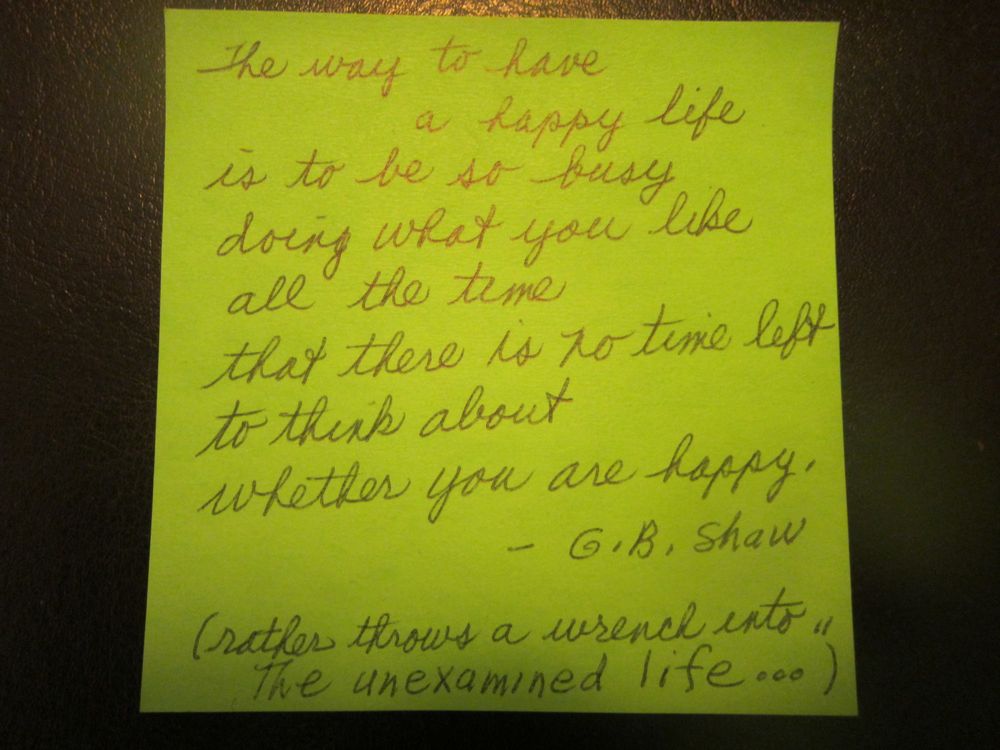 The way to have
a happy life
is to be so busy
doing what you like
all the time
that there is no time left
to think about
whether you are happy.
- G.B. Shaw
(rather throws a wrench into
"The unexamined life...)